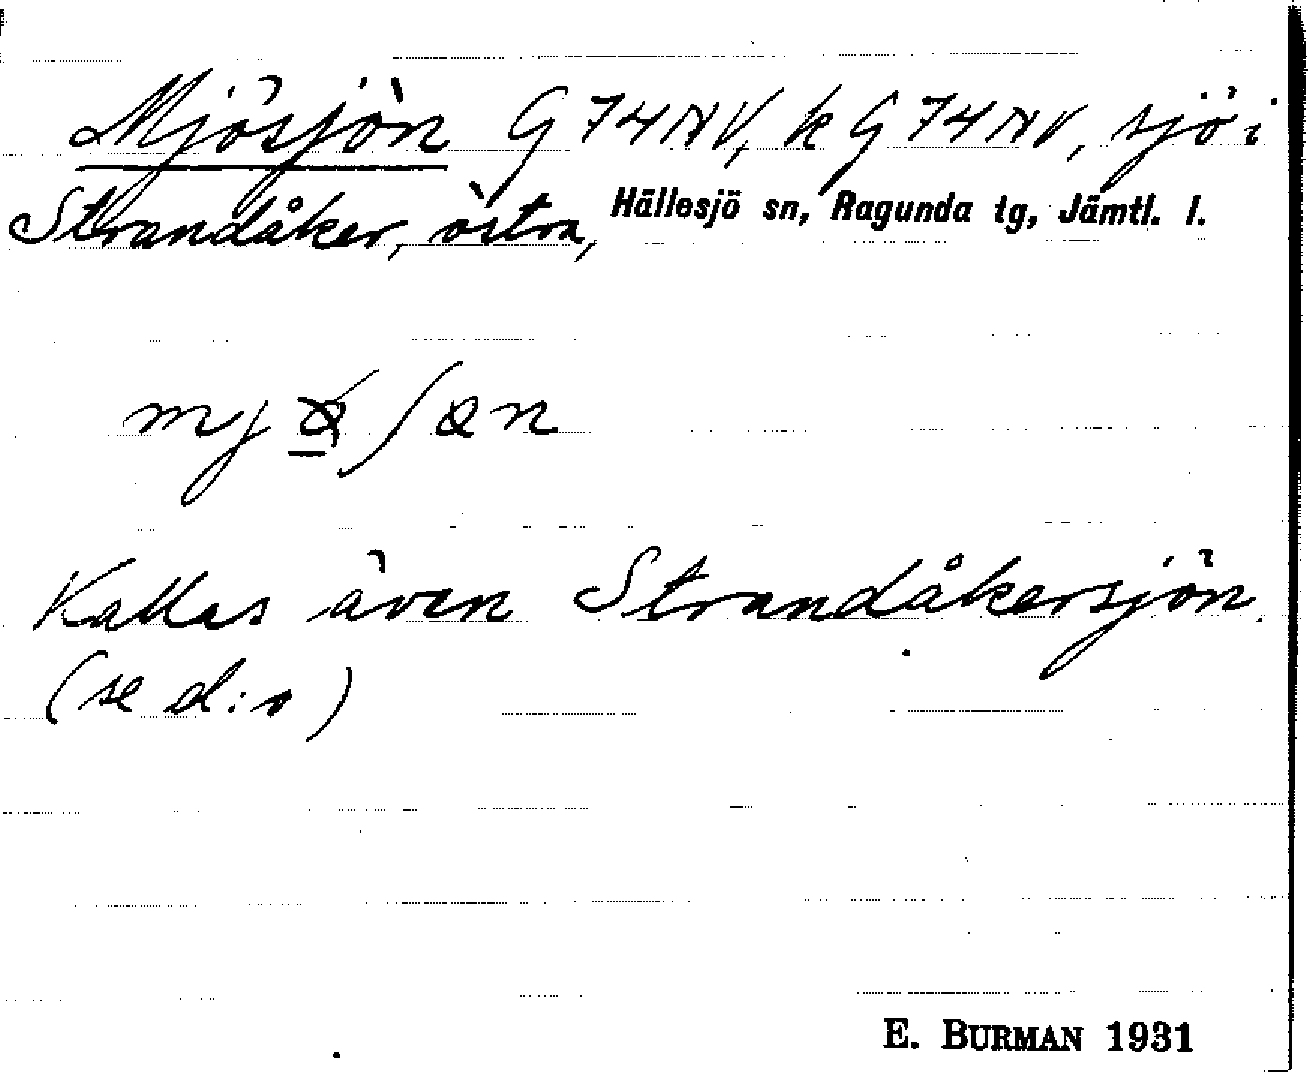 Mjösjön G 74 NV, k G 74 NV, sjö i
Strandåker, östra, Hällesjö sn, Ragunda tg, Jämtl. l.
Kallas även Strandåkersjön.
(se d:o)
E. BURMAN 1931